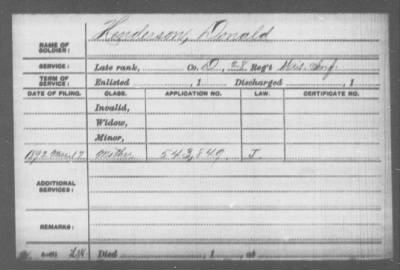 NAME OF SOLDIER: Henderson, Donald
SERVICE: Late rank, Co. D, 28 Reg't Wis. Inf.
TERM OF SERVICE: Enlisted , 1 Discharged , 1
DATE OF FILING. CLASS. APPLICATION NO. LAW. CERTIFICATE NO.
Invalid,
Widow,
Minor,
1892 Mch 17 Mother 543,849 J
ADDITIONAL SERVICES:
REMARKS:
Died , 1 , at